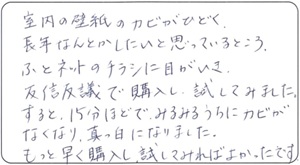 室内の壁紙のカビがひどく、
長年なんとかしたいと思っているところ、
ふとネットのチラシに目がいき、
反信反議で購入し、試してみました。
すると、15分ほどで、みるみるうちにカビが
なくなり、真っ白になりました。
もっと早く購入し、試してみればよかったです